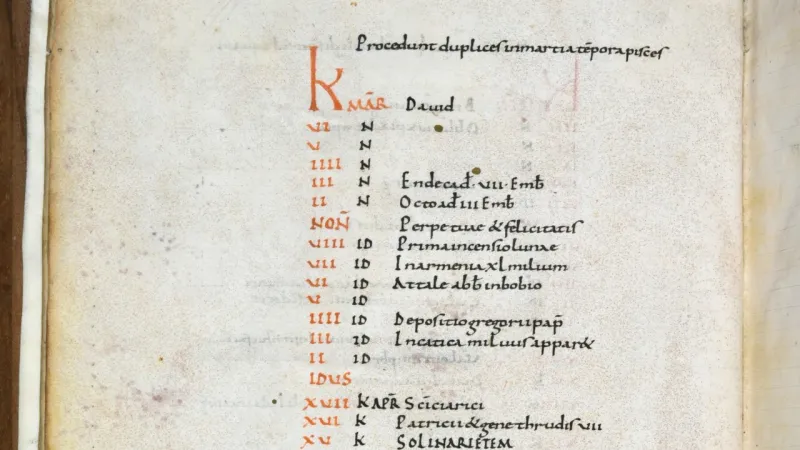 Procedunt duplices in martia tēpora pisces
K MĀR David
VI N
V N
IIII N
III N Endecad̄ · VII · Emb̄
II N Octoad̄ III Emb̄
NOÑ Perpetuae & felicitatis
VIII ID Prima incensio lunae
VII ID In armenia xl milium
VI ID Attale abb̄ in bobio
V ID
IIII ID Depositio gregorii pap̄
III ID In catica miluus appar&
II ID
IDUS
XVII K APR̄ S ciriaci
XVI K Patricii & genethrudis VII
XV K SOL IN ARIETEM